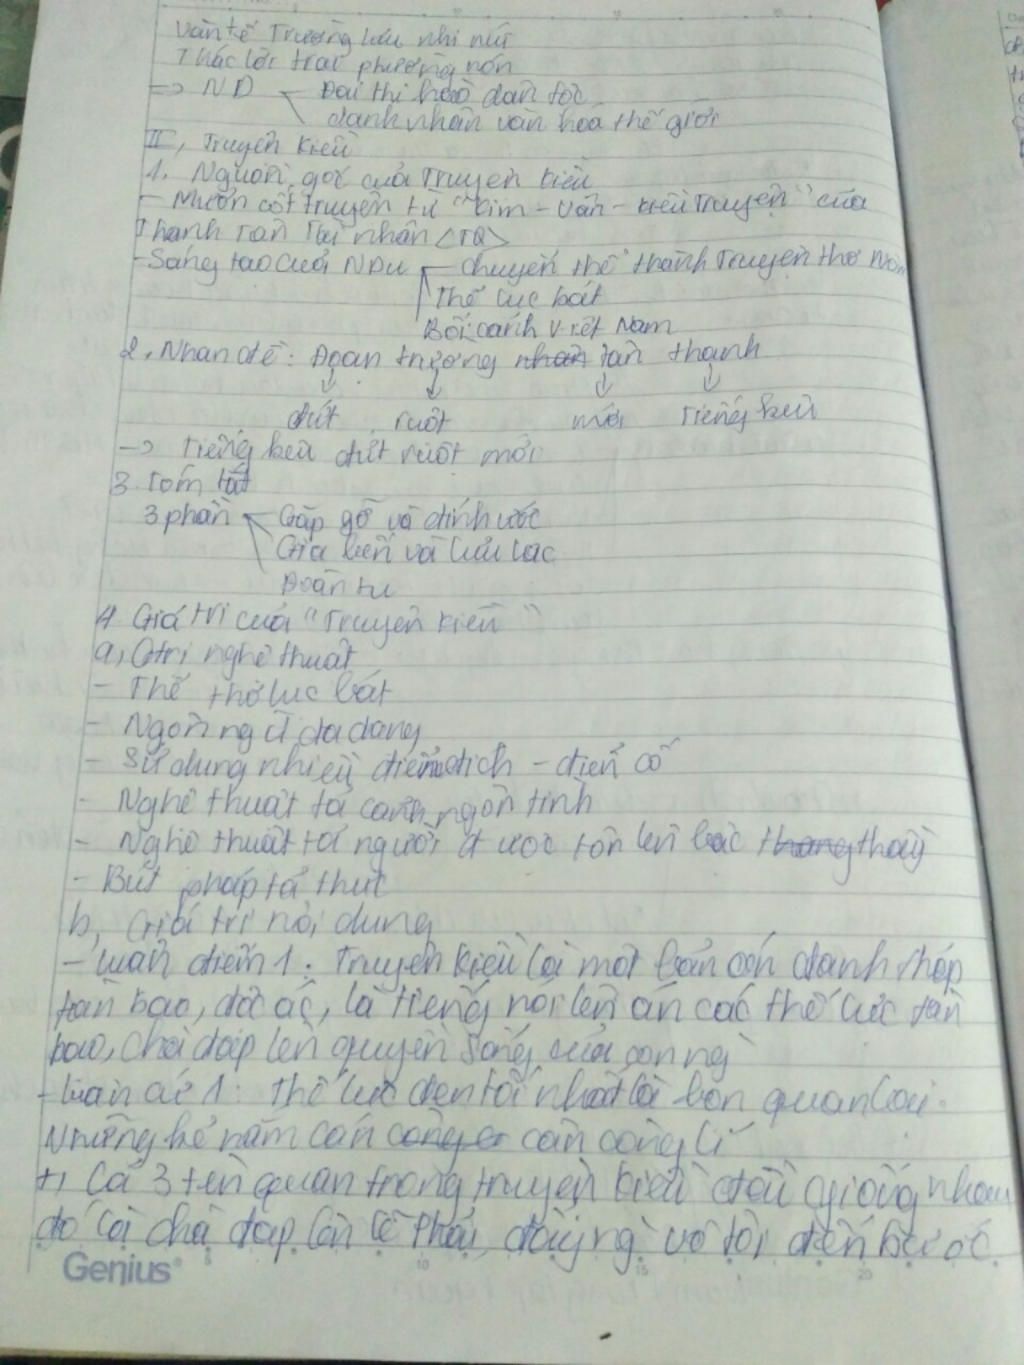 Văn tế Trường Lưu nhị nữ
Thác lời trai phường nón
=> ND — Đại thi hào dân tộc
danh nhân văn hoá thế giới
II, Truyện Kiều
1. Nguồn gốc của Truyện Kiều
- Mượn cốt truyện từ "Kim - Vân - Kiều Truyện" của
Thanh Tâm Tài nhân <TQ>
- Sáng tạo của NDu — chuyển thể thành Truyện thơ Nôm
Thể lục bát
Bối cảnh Việt Nam
2. Nhan đề: Đoạn trường nhân tân thanh
đứt ruột mới tiếng kêu
-> Tiếng kêu đứt ruột mới
3 Tóm tắt
3 phần — Gặp gỡ và đính ước
Gia biến và lưu lạc
Đoàn tụ
4 Giá trị của "Truyện Kiều"
a, Gtrị nghệ thuật
- Thể thơ lục bát
- Ngôn ngữ đa dạng
- Sử dụng nhiều điển tích - điển cố
- Nghệ thuật tả cảnh ngôn tình
- Nghệ thuật tả người được tôn lên bậc thang thầy
- Bút pháp tả thực
b, Giá trị nội dung
- Luận điểm 1: Truyện Kiều là một bản cón đanh thép
tàn bạo, độc ác, là tiếng nói lên án các thế lực tàn
bạo, chà đạp lên quyền sống của con ng
- Luận cứ 1: Thế lực đen tối nhất là bọn quan lại.
Những kẻ nắm cán công cr cân công lí
+, Cả 3 tên quan trong truyện Kiều đều giống nhau
đó là chà đạp lên lẽ phải, đẩy ng vô tội đến bước
Genius